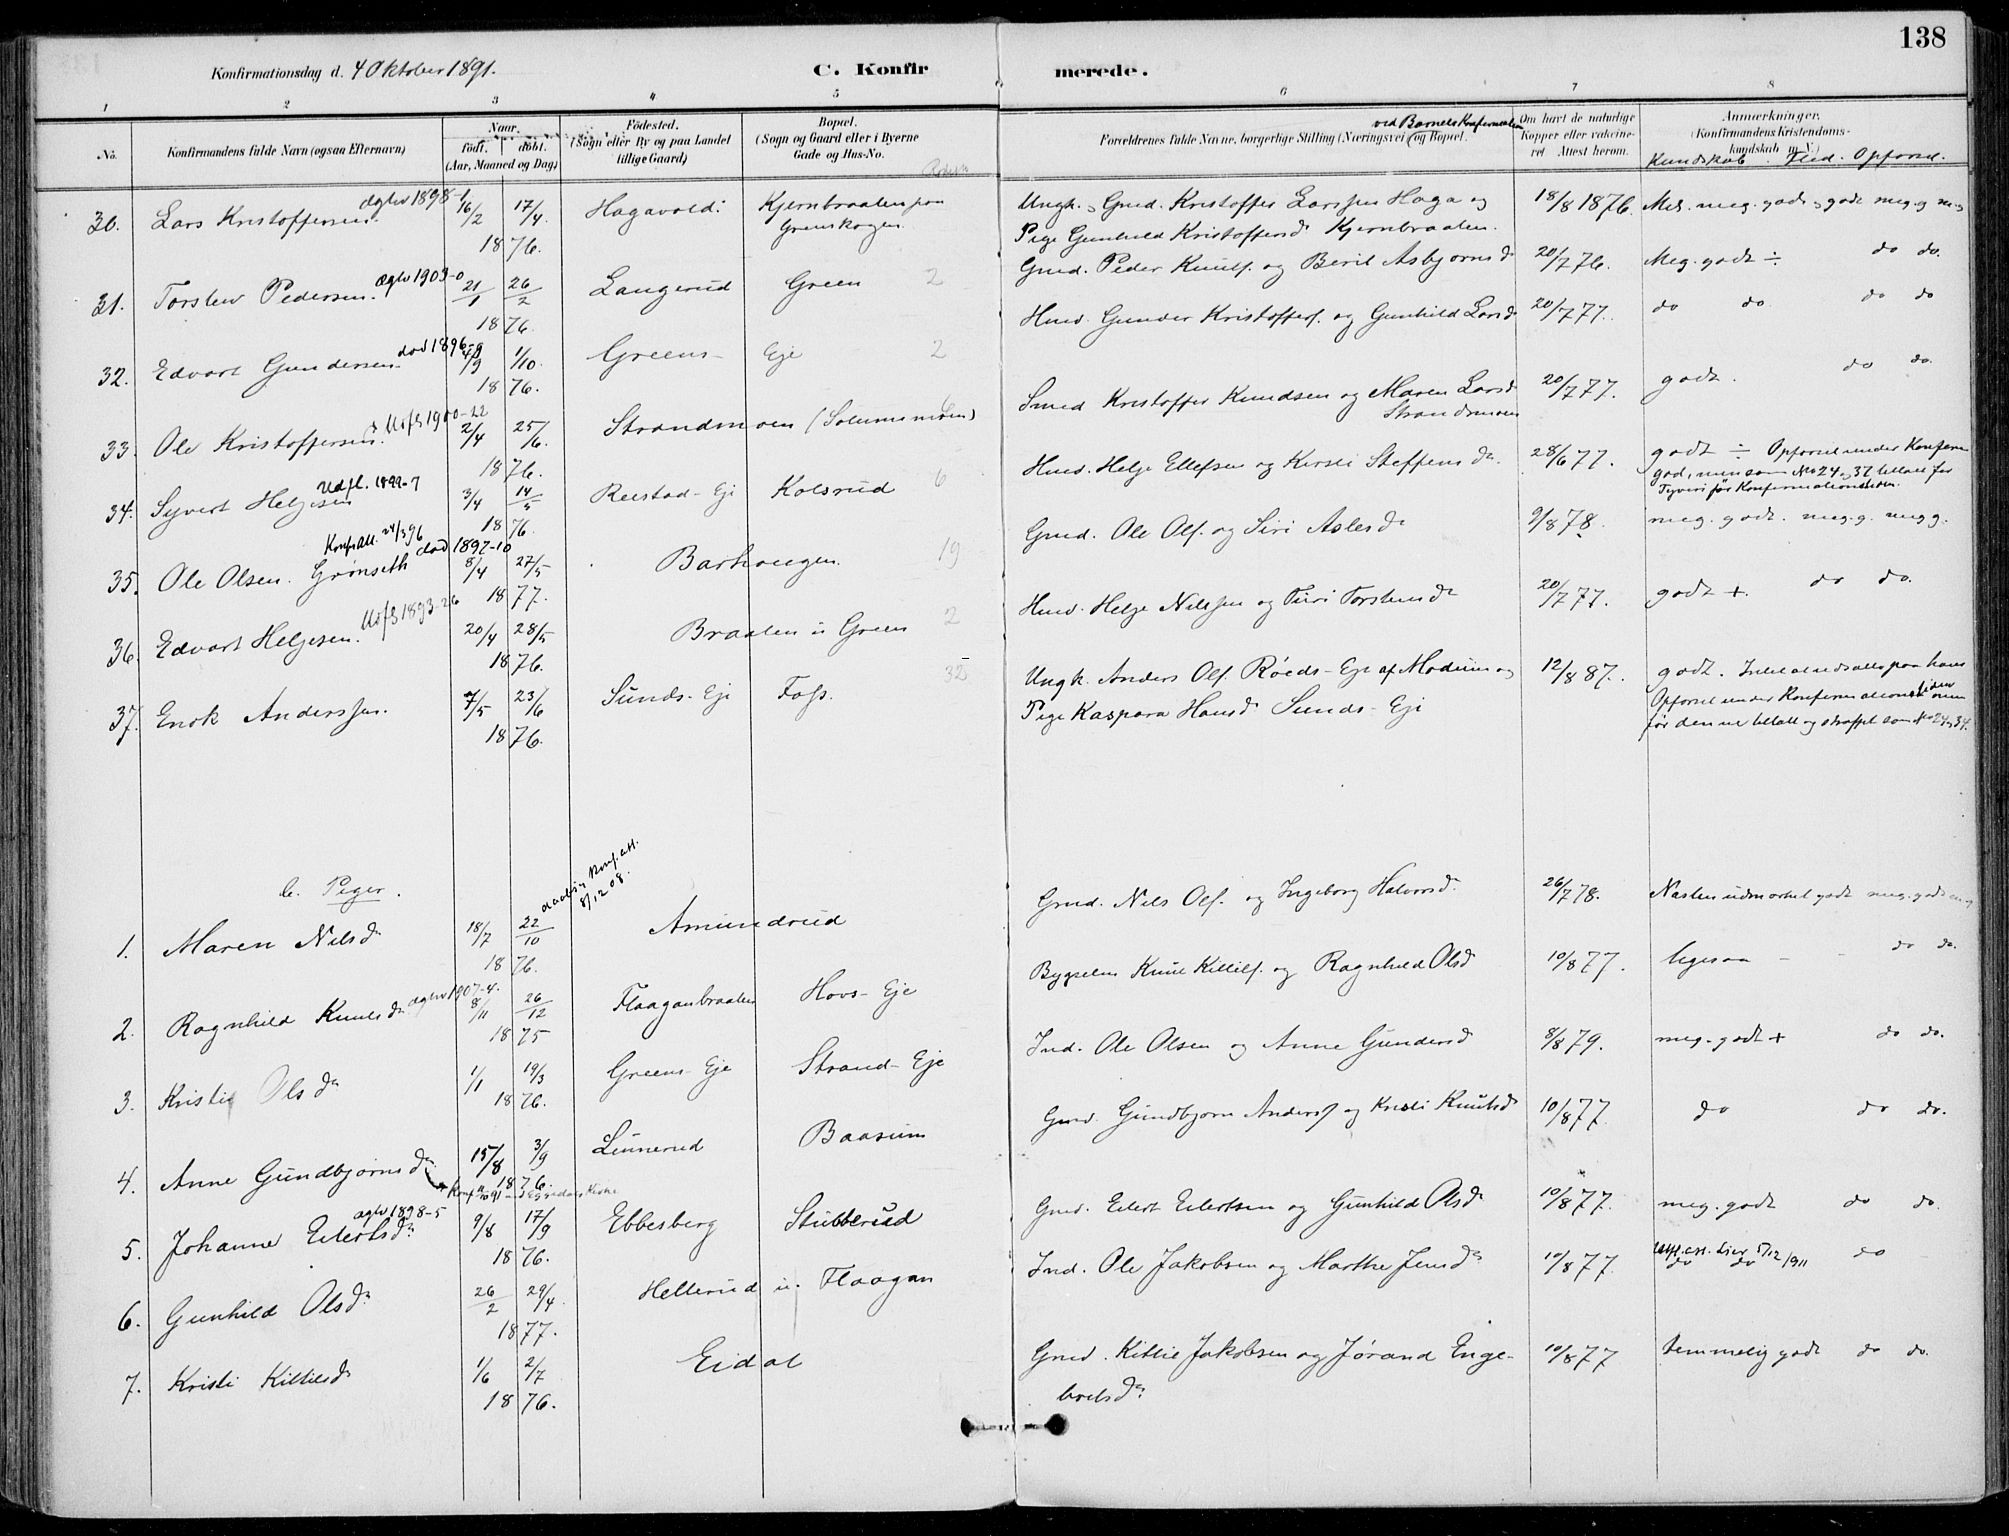 138
Konfirmationsdag d. 4 Oktober 1891.
C. Konfir merede.
1 2 3 4 5 6 7 8
No.
Konfirmandens fulde Navn (ogsaa Efternavn)
Naar
født. døbt.
(Aar, Maaned og Dag)
Fødested.
(Sogn eller By og paa Landet
tillige Gaard)
Bopæl.
(Sogn og Gaard eller i Byerne
Gade og Hus-No.
Forældrenes fulde Navne, borgerlige Stilling (Næringsvei) og Bopæl.
ved Barnets Konfirmation
Om havt de naturlige
Kopper eller vakcine-
ret Attest herom.
Anmerkninger,
(Konfirmandens Kristendoms-
kundskab m. V.)
Kundskab. Flid. Opførsel.
30. Lars Kristoffersen. ægtev 1898-1 16/2 17/4 Hagavold: Kjernbraaten paa Ungk. Gmd. Kristoffer Larssen Haga og 18/8 1876.
Grenskogen Pige Gunhild Kristoffersdr Kjernbraaten.
1876.
31. Torsten Pedersen. ægtev 1903-0 21/1 26/2 Langerud Green 2 Gmd. Peder Knuts. og Berit Asbjørnsdr 20/7 76. Meg. godt ÷ do do.
1876.
32. Edvart Gundersen. død 1896-8 4/9 1/10 Greens- Eje 2 Hmd. Gunder Kristoffers. og Gunhild Larsdr 20/7 77. do do. do do
1876.
33. Ole Kristoffersen. Udfl 1900-22 2/4 25/6. Strandmoen (Solumsmoen) Smed Kristoffer Knudsen og Maren Larsdr 20/7 77. godt. do do.
Strandmoen
1876.
34. Syvert Helgesen Udfl. 1892-7 3/4 14/5 Reistad-Eje Kolsrud 6 Hmd. Helge Ellefsen og Kirsti Steffensdr. 28/6 77. godt ÷ Opførsel under Konferm
god, men som No 24 & 37 tiltalt for
Tyveri før Konfermationstiden.
1876.
35. Ole Olsen. Grønseth Konf.att. 24/3 96 død 1897-10 8/4 27/5 Barhaugen. 19 Gmd. Ole Ols. og Siri Aslesdr 9/8 78. meg. godt. meg. g. meg g.
1877.
36. Edvart Helgesen. Udfl 1893-26 20/4 28/5 Braaten u Green 2 Hmd. Helge Nilssen og Turi Torstensdr 20/7 77. godt +. do do.
1876.
37. Enok Anderssen. 7/5 23/6 Sunds-Eje Foss. Ungk. Anders Ols. Røeds-Eje af Modum og 12/8 87. godt. Intet at udsætte paa hans
Pige Kaspara Hansdr Sunds-Eje Opførsel under Konfermationstiden men
før den var tiltalt og straffet som No 24 & 34.
1876.
b. Piger.
1. Maren Nilsdr 18/7 22/10 Amundrud Gmd. Nils Ols. og Ingeborg Halvorsdr. 26/7 78. Næsten udmærket godt meg. godt
1876.
8/12 08.
2. Ragnhild Knutsdr ægtev 1907-4. 8/11 26/12 Flaaganbraaten Hovs-Eje Bygselm Knut Kittils. og Ragnhild Olsdr 10/8 77. ligesaa - do do.
1875
3. Kristi Olsdr 1/1 19/3 Greens-Eje Strand-Eje Ind. Ole Olsen og Anne Gundersdr 8/8 79. meg. godt + do do.
1876.
4. Anne Gundbjørnsdr 15/8 3/9 Linnerud Baasum Gmd. Gundbjørn Anders. og Kristi Knutsdr 10/8 77 do do do.
1876.
5. Johanne Eilertsdr ægtev 1898-5 9/8 17/9 Ebbesberg Stubberud Gmd. Eilert Eilertsen og Gunhild Olsdr 10/8 77. meg. godt do do.
1876.
6. Gunhild Olsdr. 26/2 29/4. Hellerud u. Flaagan Ind. Ole Jakobsen og Marthe Jensdr 10/8 77. do do do
Udfl. att. Lier 5/12 1911
1877.
7. Kristi Kittilsdr 1/6 2/7 Eidal Gmd. Kittil Jakobsen og Jørand Enge- 10/8 77 temmelig godt do do.
bretsdr
1876.